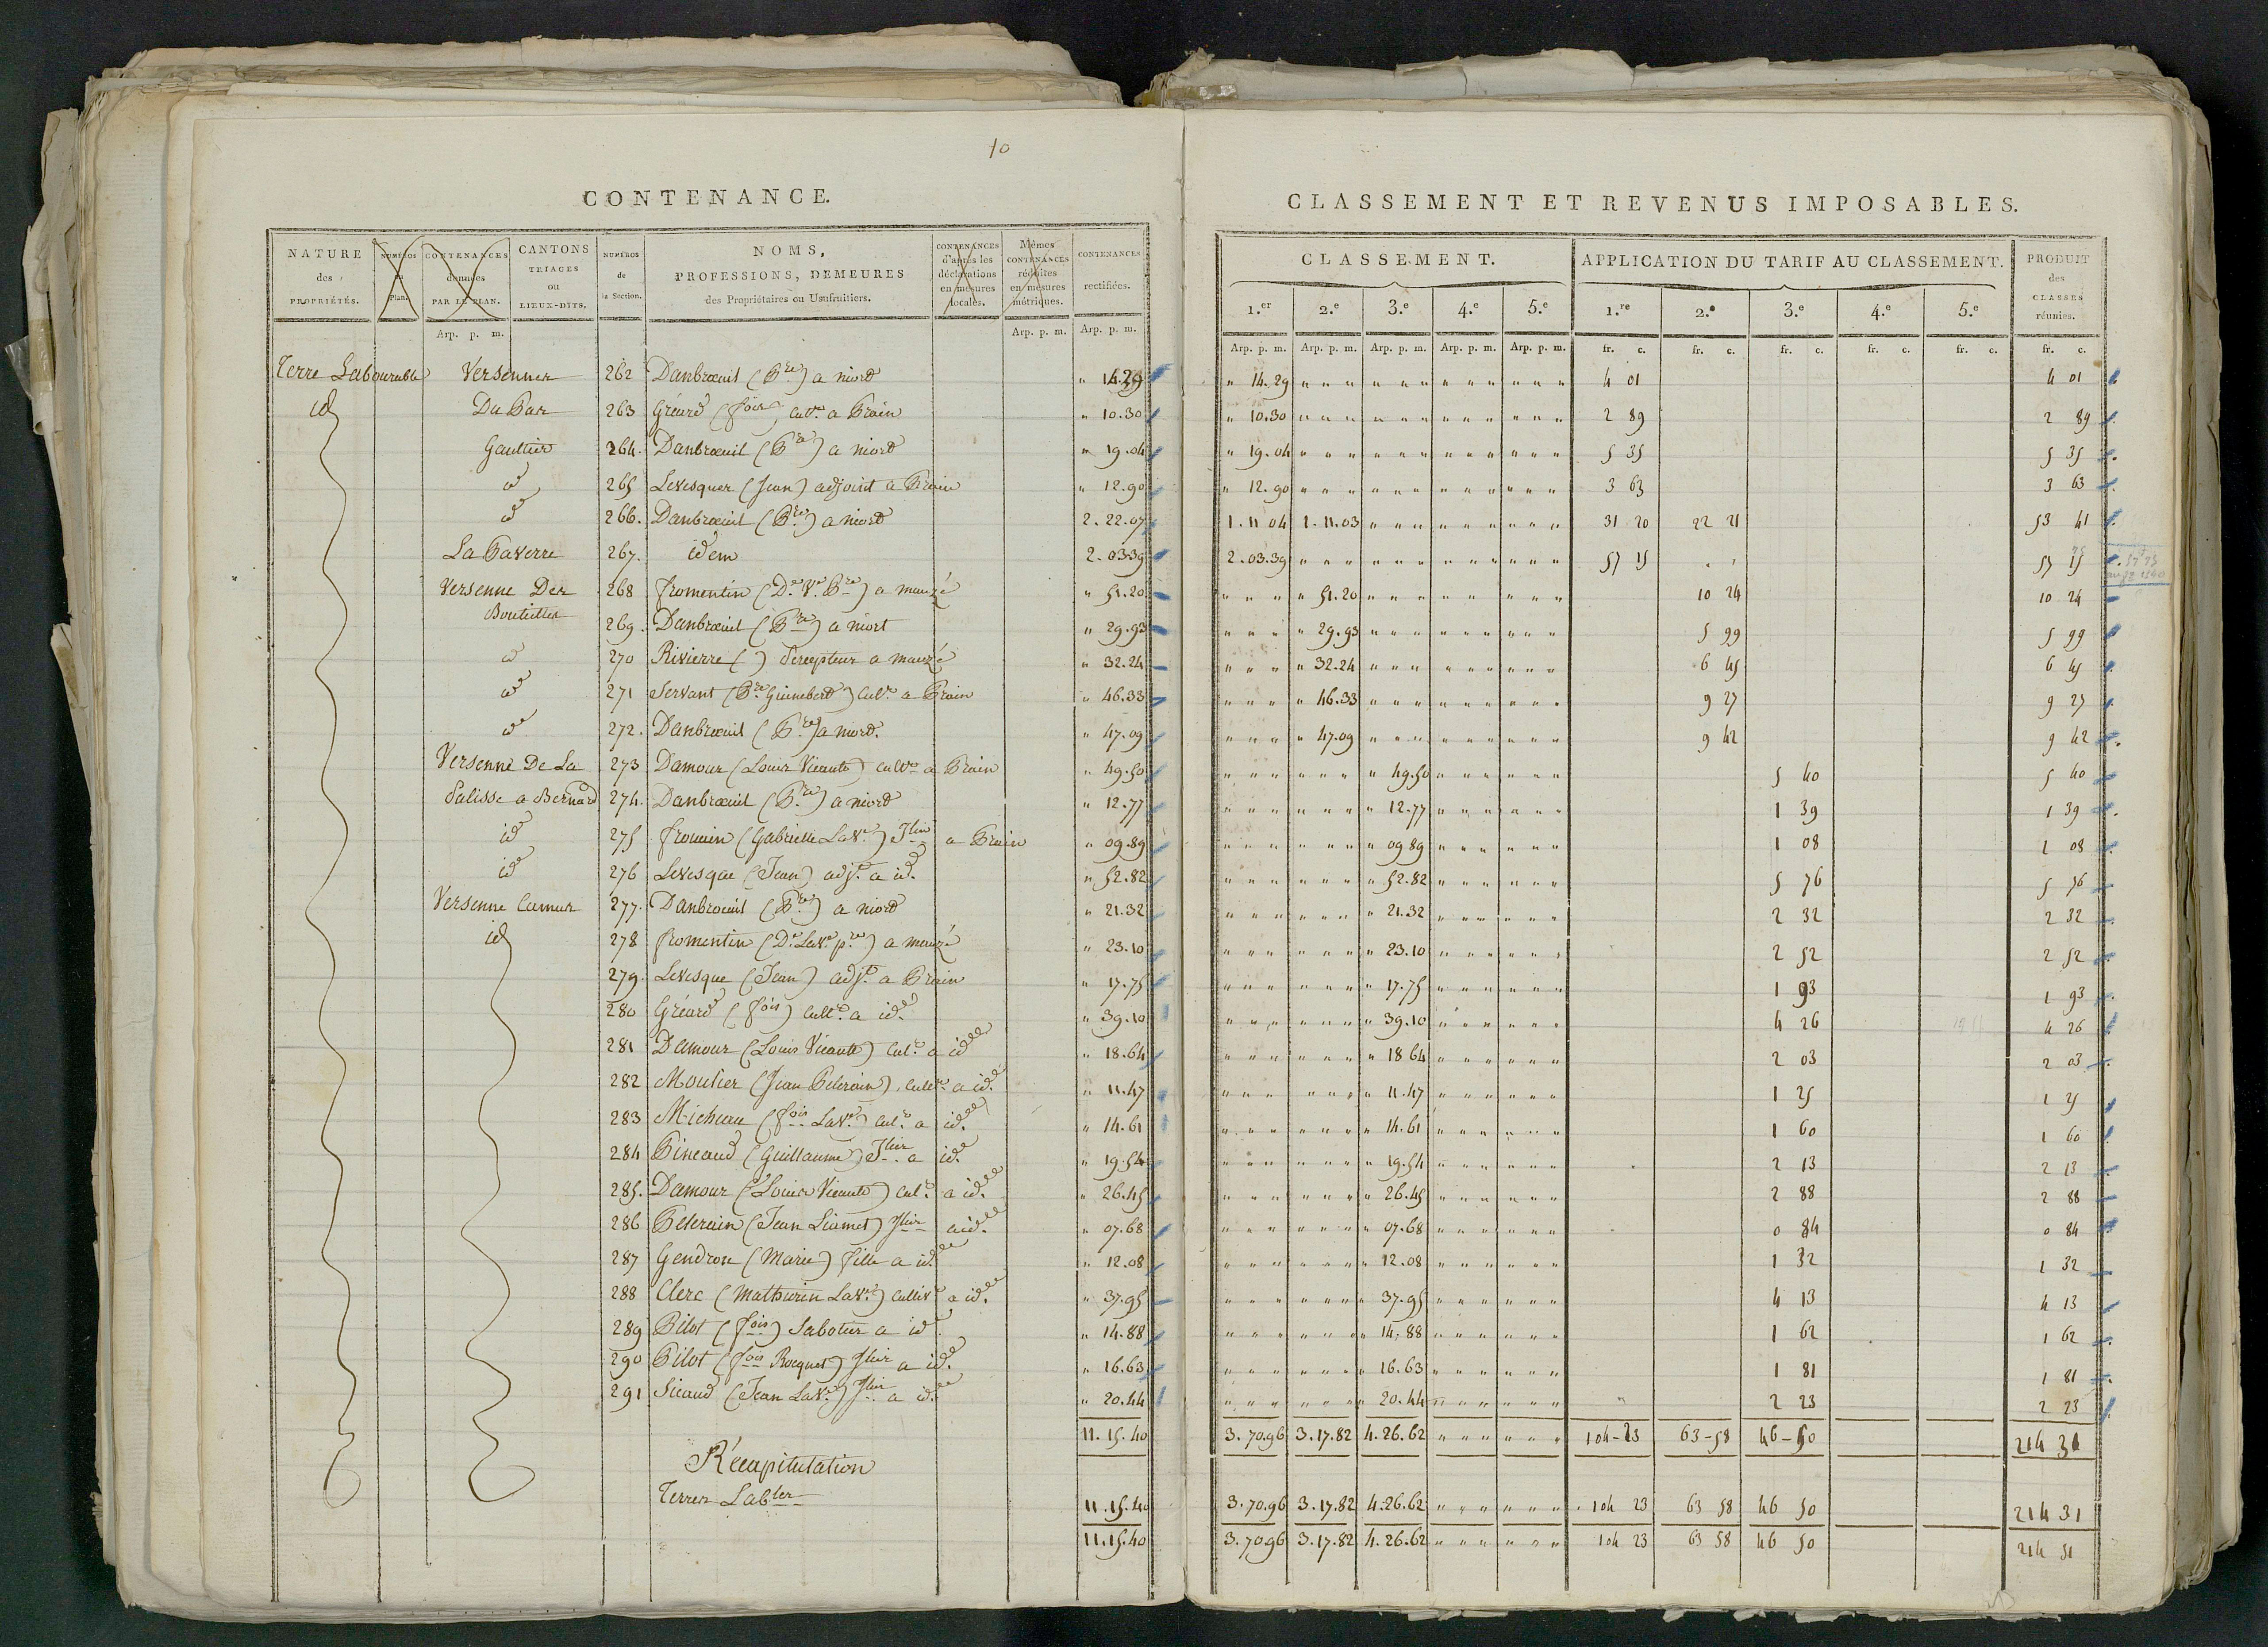 10
CONTENANCE.
NATURE des PROPRIÉTÉS. NUMÉROS du Plan. CONTENANCES données PAR LE PLAN. CANTONS TRIAGES ou LIEUX-DITS. NUMÉROS de la Section. NOMS, PROFESSIONS, DEMEURES des Propriétaires ou Usufruitiers. CONTENANCES d'après les déclarations en mesures locales. Mêmes CONTENANCES réduites en mesures métriques. CONTENANCES rectifiées.
Arp. p. m. Arp. p. m. Arp. p. m.
Terre Labourable Versennes 262 Danbrœuil (P.re) a niord " 14.29
id Du Bar 263 Gréard (fois) cult.r a Brain " 10.30
Gaultier 264. Danbrœuil (P.re) a niord " 19.04
id 265 Levesquer (Jean) adjoint a Brain " 12.90
id 266. Danbrœuil (P.re) a niord 2.22.07
La Paverre 267. idem 2.03.39
Versenne Des 268 fromentin (D.e V.e P.re) a mauzé " 51.20
Bouteilles 269. Danbrœuil (P.re) a niort " 29.93
id 270 Rivierre ( ) percepteur a mauzé " 32.24
id 271 Servant (P.re Guinebert) Cult.r a Brain " 46.33
id 272. Danbrœuil (P.re) a niord. " 47.09
Versenne De La 273 Damour (Louis Vieante) cult.r a Brain " 49.50
Palisse a Bernard 274. Danbrœuil (P.re) a niord " 12.77
id 275 frouin (Gabrielle La V.e) J.lier a Brain " 09.89
id 276 Levesque (Jean) adj.t a id. " 52.82
Versenne Camus 277. Danbrœuil (P.re) a niord " 21.32
id 278 fromentin (D.e La V.e p.re) a mauzé " 23.10
279. Levesque (Jean) adj.t a Brain " 17.75
280 Gréard (fois) cult.r a id. " 39.10
281 Damour (Louis Vieante) Cul.r a id " 18.64
282 Moulier (Jean Pelerain) cult.r a id. " 11.47
283 Michau (fois La V.e) cul.r a id. " 14.61
284 Pineaud (Guillaume) J.lier a id. " 19.54
285. Damour (Louis Vieante) cul.r a id. " 26.45
286 Pelerain (Jean Liamet) J.lier a id. " 07.68
287 Gendron (Marie) fille a id. " 12.08
288 Clerc (Mathurin La V.e) cultiv.r a id. " 37.95
289 Pilot (fois) Sabotier a id. " 14.88
290 Pilot (fois Rocquet) J.lier a id. " 16.63
291 Sicaud (Jean La V.e) J.lier a id. " 20.44
11.15.40
Récapitulation
Terres Lab.les 11.15.40
11.15.40
CLASSEMENT ET REVENUS IMPOSABLES.
CLASSEMENT. APPLICATION DU TARIF AU CLASSEMENT. PRODUIT des CLASSES réunies.
1.er 2.e 3.e 4.e 5.e 1.re 2.e 3.e 4.e 5.e
Arp. p. m. Arp. p. m. Arp. p. m. Arp. p. m. Arp. p. m. fr. c. fr. c. fr. c. fr. c. fr. c. fr. c.
" 14.29 " " " " " " " " " " " " 4 01 4 01
" 10.30 " " " " " " " " " " " " 2 89 2 89
" 19.04 " " " " " " " " " " " " 5 35 5 35
" 12.90 " " " " " " " " " " " " 3 63 3 63
1.11 04 1.11.03 " " " " " " " " " 31 20 22 21 53 41
2.03.39 " " " " " " " " " " " " 57 15 " " 57 15
" " " " 51.20 " " " " " " " " " 10 24 10 24
" " " " 29.93 " " " " " " " " " 5 99 5 99
" " " " 32.24 " " " " " " " " " 6 45 6 45
" " " " 46.33 " " " " " " " " " 9 27 9 27
" " " " 47.09 " " " " " " " " " 9 42 9 42
" " " " " " " 49.50 " " " " " " 5 40 5 40
" " " " " " " 12.77 " " " " " " 1 39 1 39
" " " " " " " 09 89 " " " " " " 1 08 1 08
" " " " " " " 52.82 " " " " " " 5 76 5 76
" " " " " " " 21.32 " " " " " " 2 32 2 32
" " " " " " " 23.10 " " " " " " 2 52 2 52
" " " " " " " 17.75 " " " " " " 1 93 1 93
" " " " " " " 39.10 " " " " " " 4 26 4 26
" " " " " " " 18 64 " " " " " " 2 03 2 03
" " " " " " " 11.47 " " " " " " 1 25 1 25
" " " " " " " 14.61 " " " " " " 1 60 1 60
" " " " " " " 19.54 " " " " " " 2 13 2 13
" " " " " " " 26.45 " " " " " " 2 88 2 88
" " " " " " " 07.68 " " " " " " 0 84 0 84
" " " " " " " 12.08 " " " " " " 1 32 1 32
" " " " " " " 37.95 " " " " " " 4 13 4 13
" " " " " " " 14.88 " " " " " " 1 62 1 62
" " " " " " " 16.63 " " " " " " 1 81 1 81
" " " " " " " 20.44 " " " " " " 2 23 2 23
3.70.96 3.17.82 4.26.62 " " " " " " 104-23 63-58 46-50 214 31
3.70.96 3.17.82 4.26.62 " " " " " " 104 23 63 58 46 50 214 31
3.70.96 3.17.82 4.26.62 " " " " " " 104 23 63 58 46 50 214 31